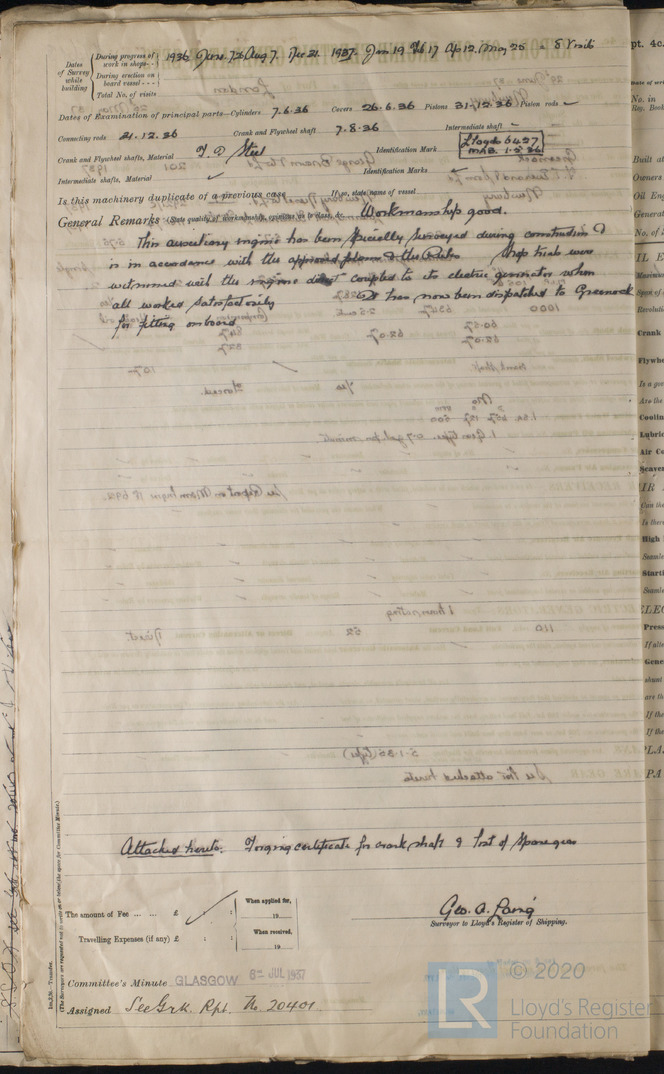 Dates of Survey while building
During progress of work in shops-- 1936 June 7.26 Aug 7. Dec 21. 1937. Jan 19 Feb 17 Ap 12. May 20 = 8 Visits
During erection on board vessel---
Total No. of visits
Dates of Examination of principal parts—Cylinders 7.6.36 Covers 26.6.36 Pistons 31.12.36 Piston rods
Connecting rods 21.12.36 Crank and Flywheel shaft 7.8.36 Intermediate shaft
Crank and Flywheel shafts, Material I.D Steel Identification Mark Lloyds 6457
1.5.36
Intermediate shafts, Material Identification Marks
Is this machinery duplicate of a previous case If so, state name of vessel
General Remarks (State quality of workmanship, opinions as to class, &c. Workmanship good.
This auxiliary engine has been specially surveyed during construction &
is in accordance with the approved plans & the Rules Shop trials were
witnessed with the engine direct coupled to its electric generator when
all worked satisfactorily It has now been dispatched to Greenock
for fitting onboard
Attached hereto: Forging certificate for crank shaft & List of Spare gear
The amount of Fee ... ... £ : :
When applied for,
19
Travelling Expenses (if any) £ : :
When received,
19
Geo. A. Laing
Surveyor to Lloyd's Register of Shipping.
Committee's Minute GLASGOW 6TH JUL 1937
Assigned See Grk. Rpt. No. 20401
(The Surveyors are requested not to write on or below the space for Committee's Minute.)
© 2020
LR
Lloyd's Register
Foundation
pt. 4c.
Date of
No. in
Reg. Book
Built at
Owners
Oil Eng
Generat
No. of
IL E
Maximum
Span of
Revoluti
Crank
Flywhe
Is a gov
Are the
Coolin
Lubric
Air Co
Scaven
IR
Can the
Is there
High
Seamle
Starti
Seamle
ELEC
Press
If alte
Gene
shunt
are th
If the
If the
PLA
PA